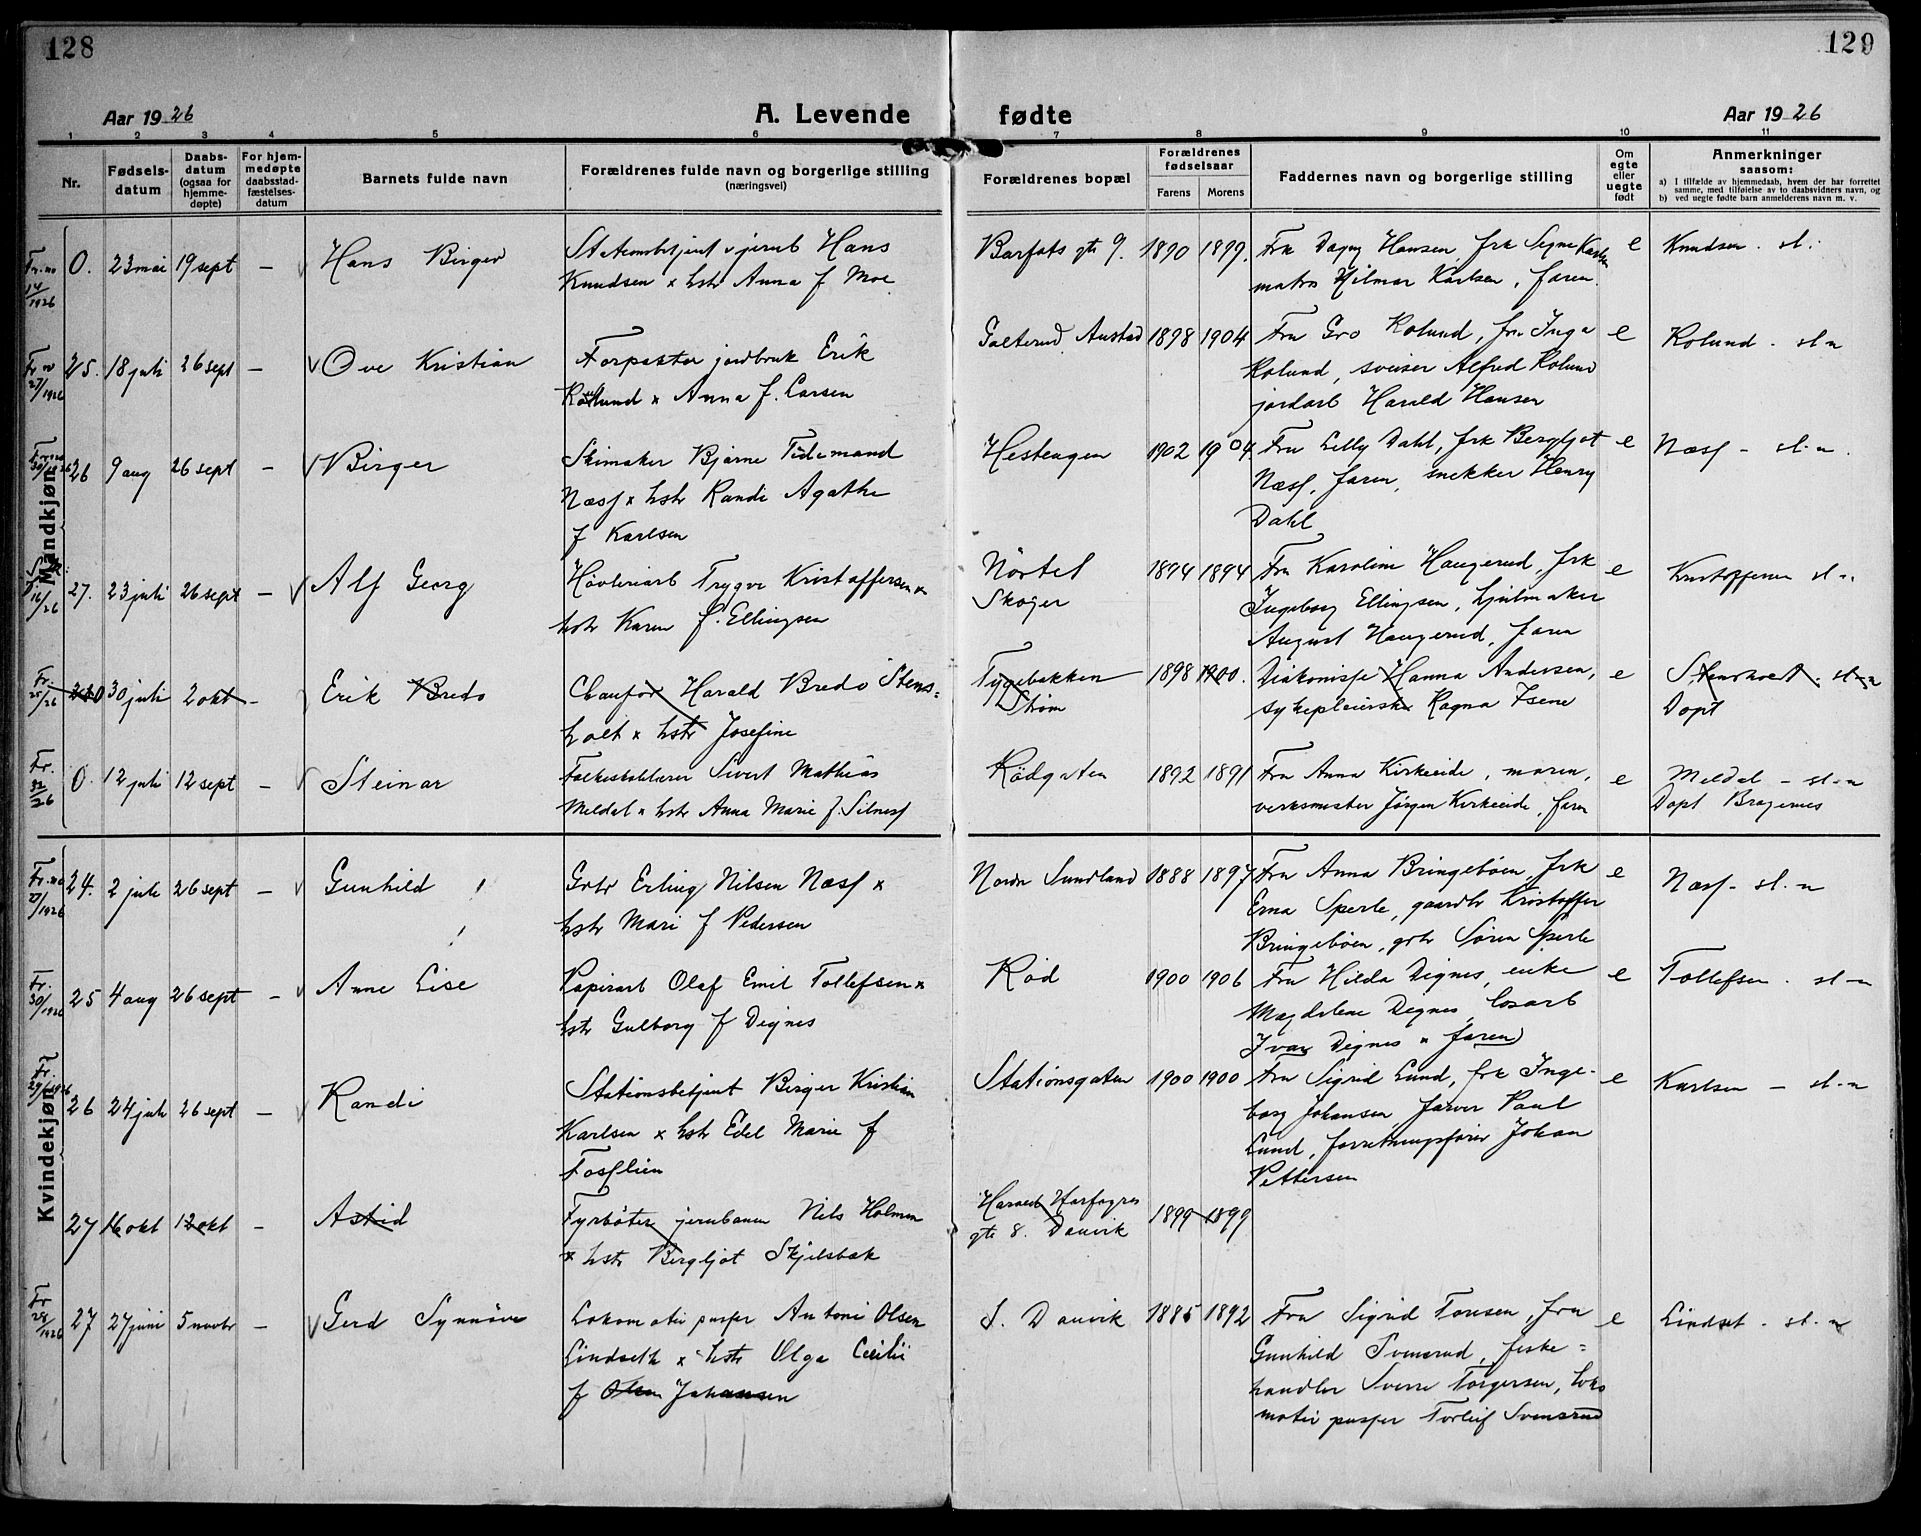 128
129
Aar 1926
A. Levende fødte
Aar 1926
1 2 3 4 5 6 7 8 9 10 11
Nr.
Fødsels-
datum
Daabs-
datum
(ogsaa for
hjemme-
døpte)
For hjem-
medøpte
daabsstad-
fæstelses-
datum
Barnets fulde navn
Forældrenes fulde navn og borgerlige stilling
(næringsvei)
Forældrenes bopæl
Forældrenes
fødselsaar
Farens Morens
Faddernes navn og borgerlige stilling
Om
egte
eller
uegte
født
Anmerkninger
saasom:
a) I tilfælde av hjemmedaab, hvem der har forrettet
samme, med tilføielse av to daabsvidners navn, og
b) ved uegte fødte barn anmelderens navn m. v.
Mandkjøn
Fr. no 14/1926
0. 23 mai 19 sept –
Hans Birger
Stationsbetjent v jernb Hans
Knudsen x hstr Anna f Moe
Barfots gt 9. 1890 1899.
Frk Dagny Hansen, frk Signe Karlsen
matros Hilmar Karlsen, faren.
e
Knudsen. st.
Fr no 27/1926
25. 18 juli 26 sept –
Ove Kristian
Forpakter jordbruk Erik
Rolund x Anna f. Larsen
Galterud Austad 1898 1904
Fru Gro Rolund, fru Inga
Rolund, sveiser Alfred Rolund
jordarb Harald Hansen
e
Rolund - st-n
Fr no 30/1926
26 9 aug 26 sept –
Birger
Skimaker Bjarne Tidemand
Næss x hstr Randi Agathe
f Karlsen
Hestengen 1902 1904
Fru Lilly Dahl, frk Bergljot
Næss, faren, snekker Henry
Dahl
e
Næss - st-n.
16/26
27. 23 juli 26 sept –
Alf Georg
Høvleriarb Trygve Kristoffersen x
hstr Karen f. Ellingsen
Nörtel
Skoger
1894 1894
Fru Karoline Haugerud, frk
Ingeborg Ellingsen, hjulmaker
August Haugerud, faren
e
Kristoffersen st-n
Fr. 25/26
30 juli 2 okt –
Erik Bredo
Chaufør Harald Bredo Stens=
holt x hstr Josefine
Tygebakken
Strøm
1898 1900.
Diakonisse Hanna Andersen,
sykepleierske Ragna Isene
e
Stensholt. st-n
Døpt
Fr. 32/26
0. 12 juli 12 sept –
Steinar
Folkeskolelærer Sivert Mathias
Meldal x hstr Anna Marie f. Silness
Rödgaten 1892 1891
Fru Anna Kirkeeide, moren,
verksmester Jørgen Kirkeeide, faren
e
Meldal - st-n
Døpt Bragernes
Kvindekjøn
Fr. no 27/1926
24. 2 juli 26 sept –
Gunhild
Gbr Erling Nilsen Næss x
hstr Mari f Pedersen
Nordre Sundland 1888 1897
Fru Anna Bringebøen, frk
Erna Sperle, gaardbr Kristoffer
Bringebøen, gbr Søren Sperle
e
Næss - st.-n
Fr. 30/1926
25 4 aug 26 sept –
Anne Lise
Papirarb Olaf Emil Tollefsen x
hstr Gulborg f Dignes
Rød 1900 1906
Fru Hilda Dignes, enke
Magdalene Dignes, losarb
Ivar Dignes x faren
e
Tollefsen. st-n
Fr. 29/1926
26 24 juli 26 sept –
Randi
Stationsbetjent Birger Kristian
Karlsen x hstr Edel Marie f
Fosslien
Stationsgaten 1900 1900
Fru Sigrid Lund, frk Inge-
borg Johansen, farver Paul
Lund, forretningsfører Johan
Pettersen
e
Karlsen - st-n
27 16 okt 12 okt –
Astrid
Fyrbøter jernbanen Nils Holmen
x hstr Bergljot Skjelsbæk
Harald Harfagres
gt 8. Danvik
1899 1899
Fr 28/1926
27 27 juni 5 novbr –
Gerd Synnöve
Lokomotiv pusser Antoni Olsen
Lindseth x hstr Olga Cecilie
f Olsen Johansen
S. Danvik 1885 1892
Fru Sigrid Tonsen, fru
Gunhild Svensrud, fiske=
handler Sverre Torgersen, loko
motiv pusser Torleif Svensrud
e
Lindset - st-n